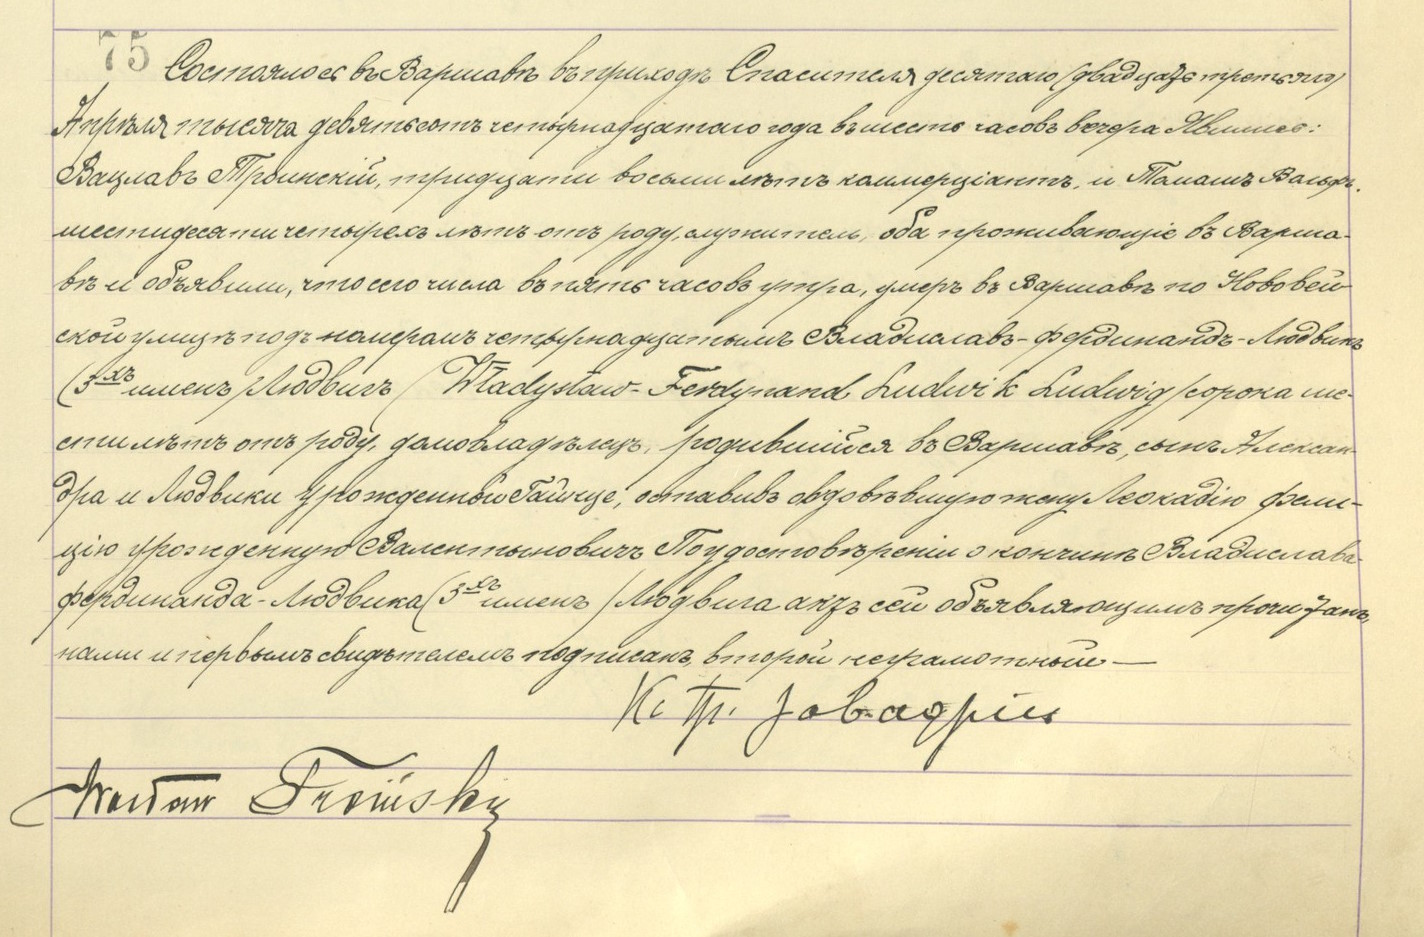 75 Состоялось въ Варшавѣ въ приходѣ Спасителя десятаго (двадцать третьяго)
Апрѣля тысяча девятьсотъ четырнадцатаго года въ шесть часовъ вечера Явились:
Вацлавъ Троинскій, тридцати восьми лѣтъ коммерціантъ, и Томашъ Вольфъ.
шестидесяти четырехъ лѣтъ отъ роду, служитель, оба проживающіе въ Варша-
вѣ и объявили, что сего числа въ пять часовъ утра, умеръ въ Варшавѣ по Нововей
ской улицѣ подъ номеромъ четырнадцатымъ Владиславъ-Фердинандъ-Людвикъ
(3хъ именъ) Людвигъ (Władysław-Ferdynand Ludwik Ludwig) сорока ше-
сти лѣтъ отъ роду, домовладѣлецъ, родившійся въ Варшавѣ, сынъ Алексан-
дра и Людвики урожденной оставивъ овдовѣвшую жену Леокадію Фели-
цію урожденную Валентыновичъ По удостовѣреніи о кончинѣ Владислава-
Фердинанда-Людвика (3хъ именъ) Людвига актъ сей объявляющимъ прочитанъ,
нами и первымъ свидѣтелемъ подписанъ, второй неграмотный —
Кс.
Wacław Troiński